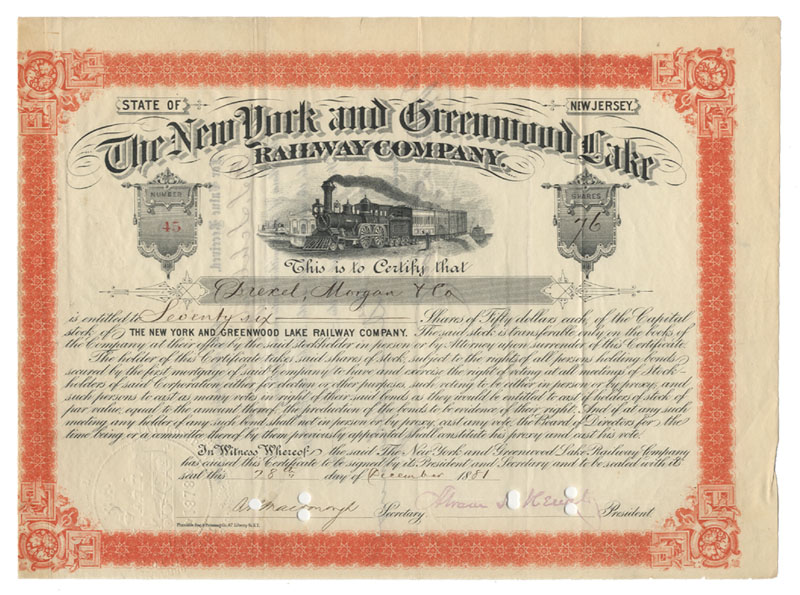 STATE OF
NEW JERSEY.
The New York and Greenwood Lake
RAILWAY COMPANY.
NUMBER
45
SHARES
76
This is to Certify that
Drexel, Morgan & Co
is entitled to Seventy six Shares of Fifty dollars each of the Capital
stock of THE NEW YORK AND GREENWOOD LAKE RAILWAY COMPANY. The said stock is transferable only on the books of
the Company at their office by the said stockholder in person or by Attorney upon surrender of this Certificate
The holder of this Certificate takes said shares of stock, subject to the rights of all persons holding bonds
secured by the first mortgage of said Company to have and exercise the right of voting at all meetings of Stock-
holders of said Corporation either for election or other purposes, such voting to be either in person or by proxy, and
such persons to cast as many votes in right of their said bonds as they would be entitled to cast if holders of stock of
par value, equal to the amount thereof, the production of the bonds to be evidence of their right; And if at any such
meeting any holder of any such bond shall not in person or by proxy, cast any vote, the Board of Directors for the
time being or a committee thereof by them previously appointed shall constitute his proxy and cast his vote.
In Witness Whereof the said The New York and Greenwood Lake Railway Company
has caused this Certificate to be signed by its President and Secretary and to be sealed with its
seal this 28th day of December 1881
Secretary
President